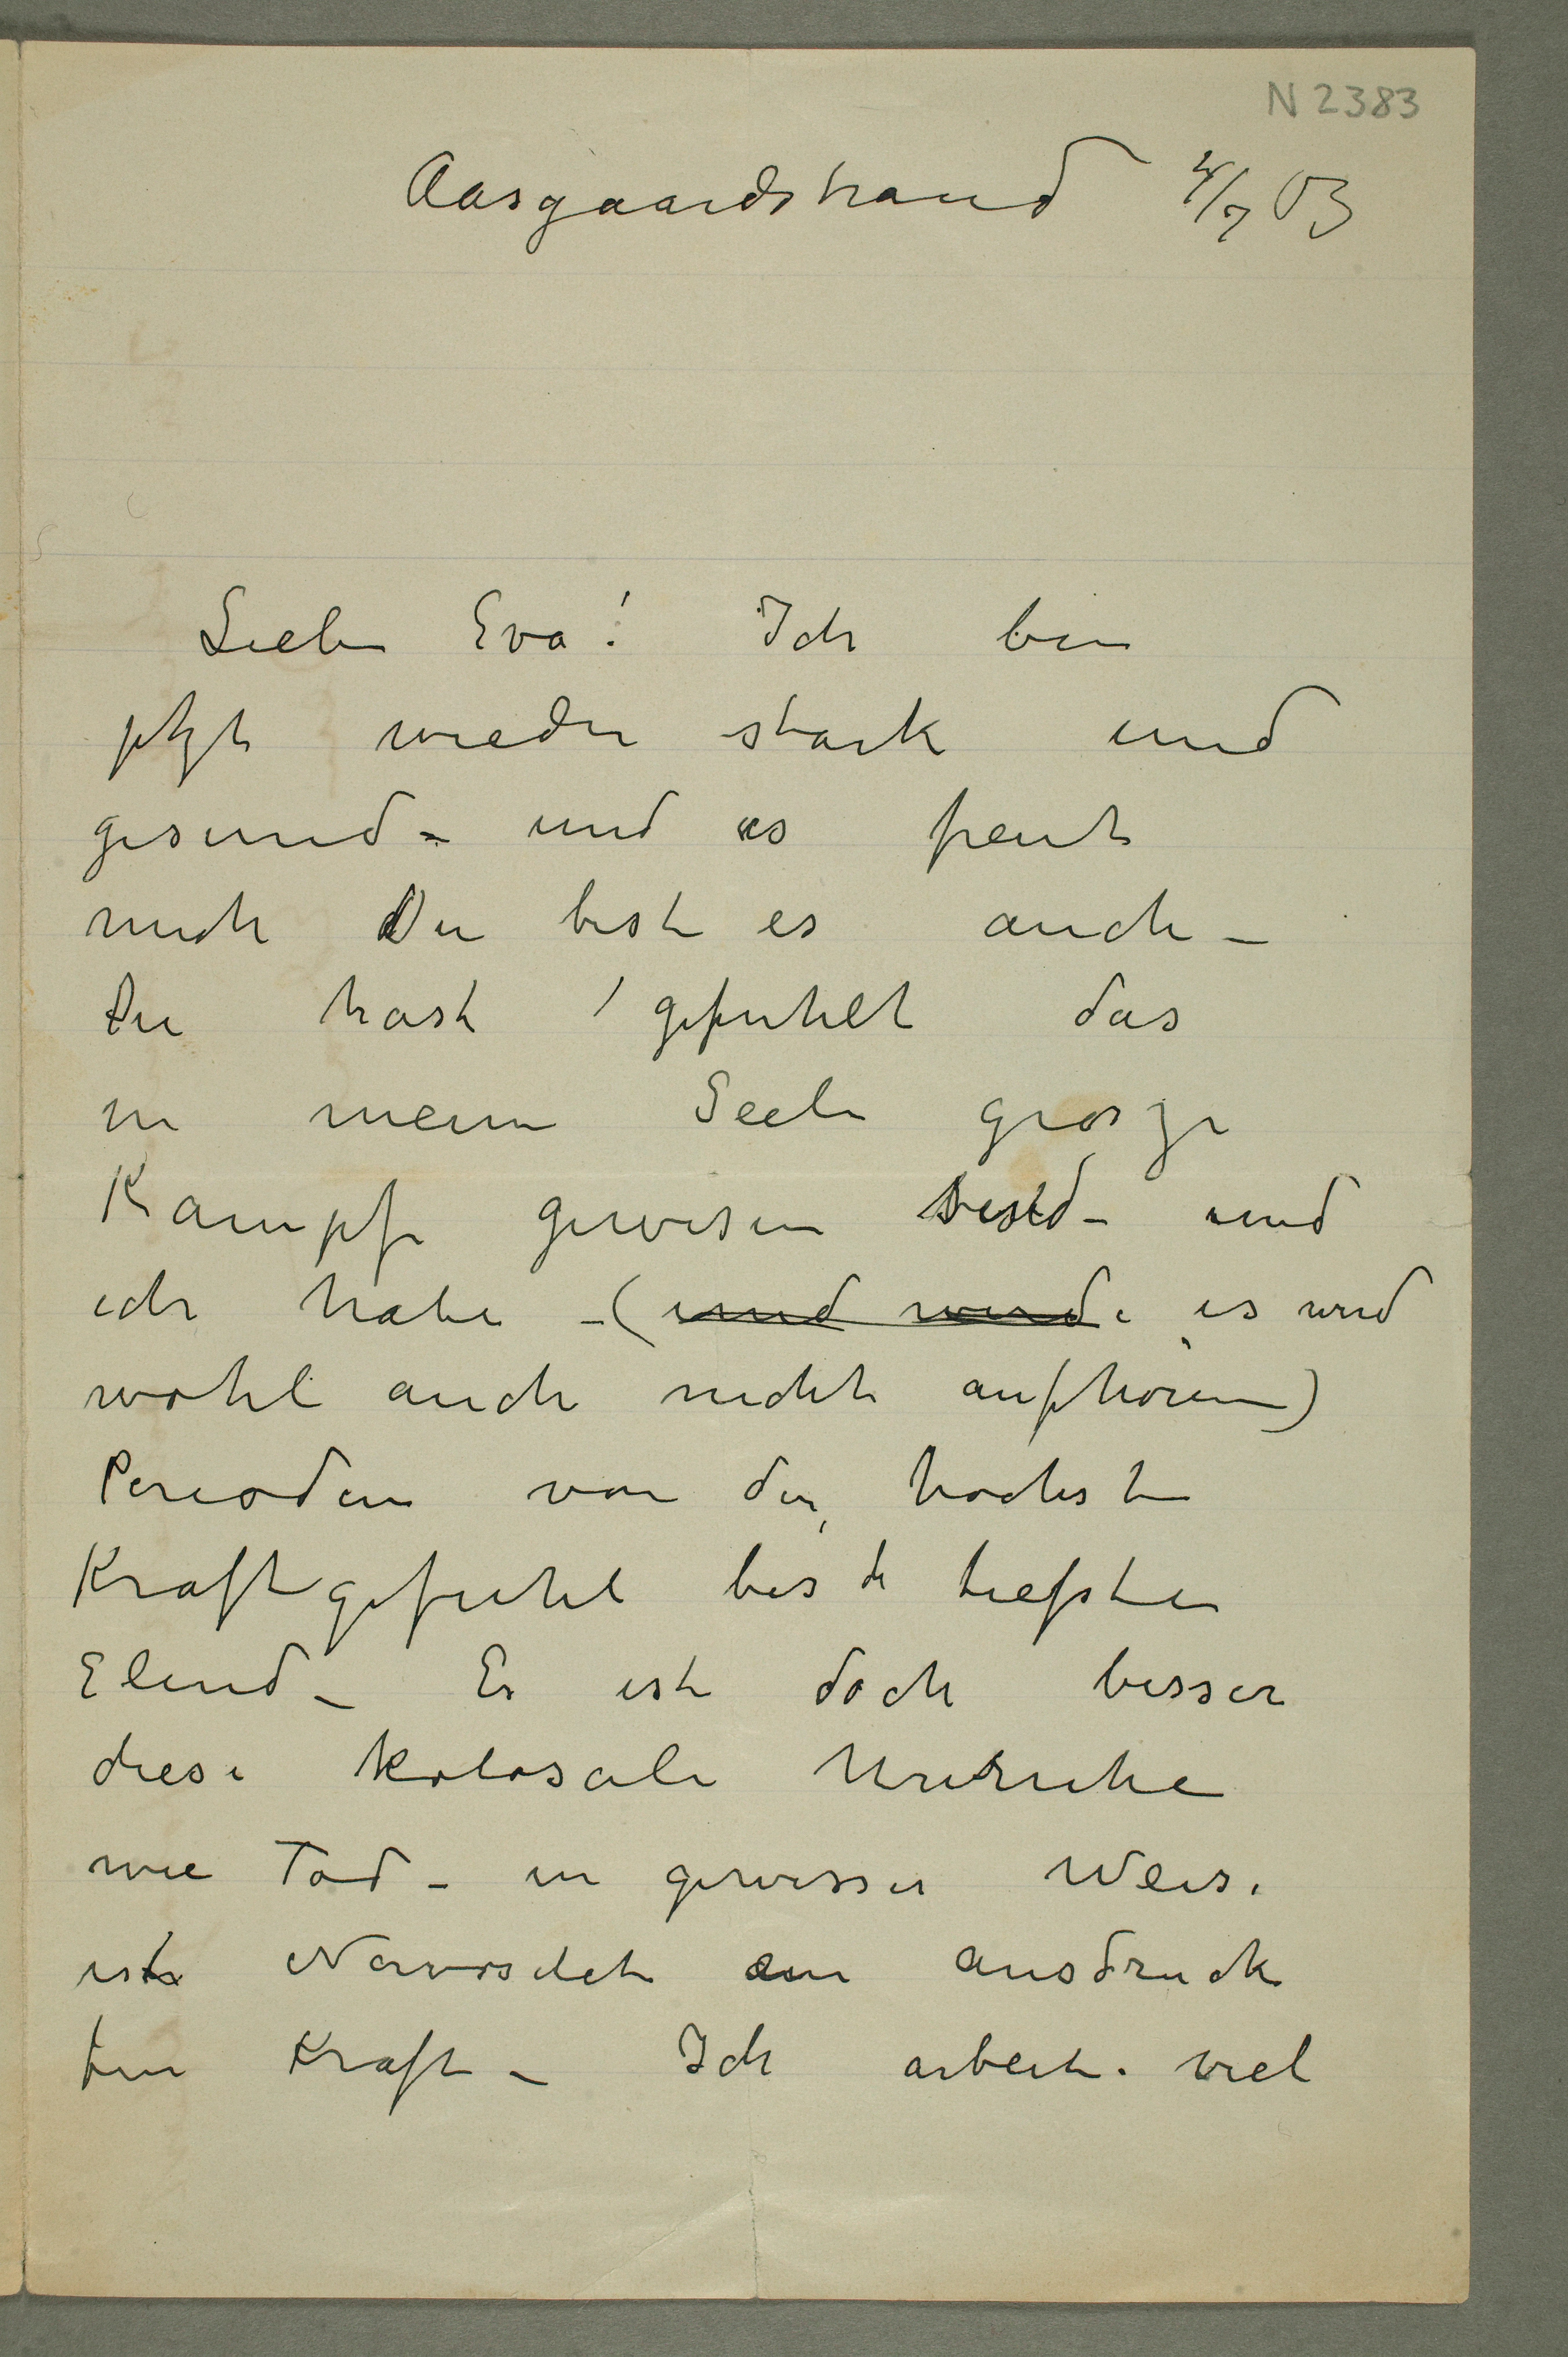 N 2383
Aasgaardstrand 4/7 03
Liebe Eva! Ich bin
jetzt wieder stark und
gesund – und es freut
mich Du bist es auch –
Du hast gefuhlt das
in meine Seele grosze
Kampfe gewesen sind – und
ich habe – (und werde es wird
wohl auch nicht aufhören)
Perioden von der hochste
Kraftgefuhl bis d tiefsten
Elend – Es ist doch besser
diese kolosale Unruhe
wie Tod – in gewisser Weise
ist Nervositet ein ausdruck
fur Kraft – Ich arbeite viel